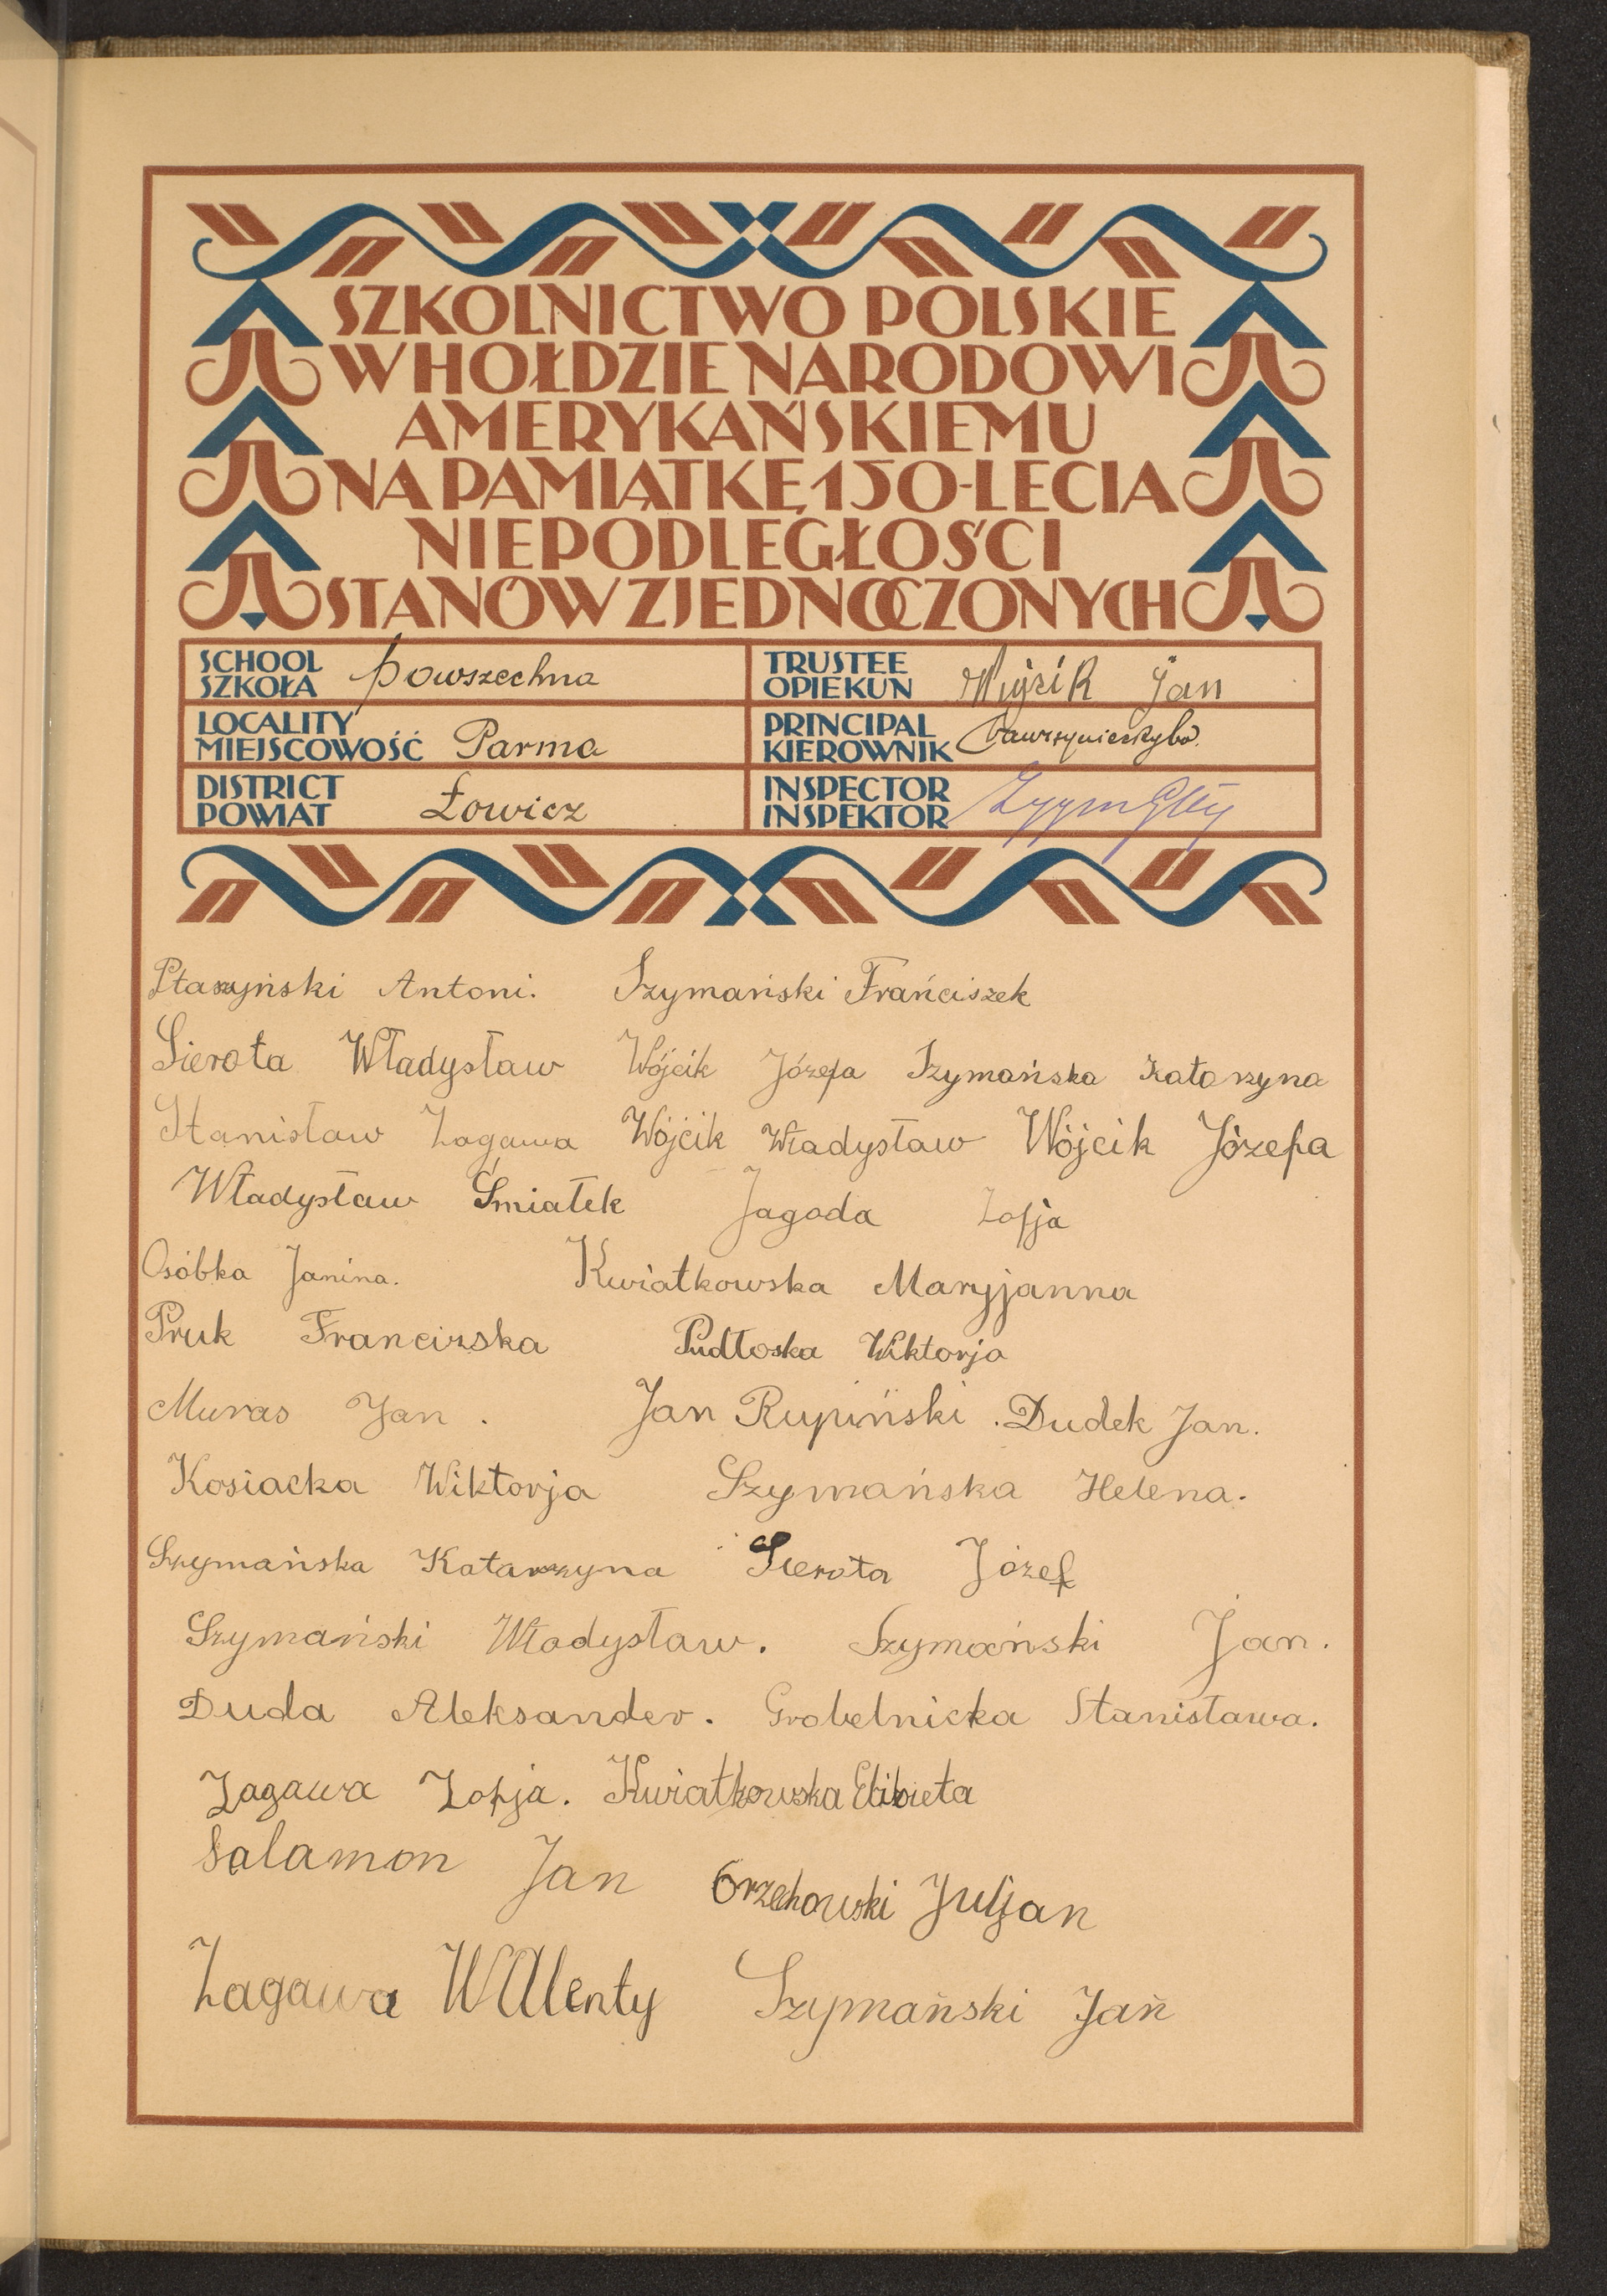 SZKOLNICTWO POLSKIE
W HOŁDZIE NARODOWI
AMERYKAŃSKIEMU
NA PAMIĄTKĘ 150-LECIA
NIEPODLEGŁOŚCI
STANÓW ZJEDNOCZONYCH
SCHOOL
SZKOŁA Powszechna
TRUSTEE
OPIEKUN Jan
LOCALITY
MIEJSCOWOŚĆ Parma
PRINCIPAL
KIEROWNIK
DISTRICT
POWIAT Łowicz
INSPECTOR
INSPEKTOR
Ptaszyński Antoni. Szymański Frańciszek
Sierota Władysław Wójcik Józefa Szymańska Katarzyna
Stanisław Zagawa Wójcik Władysław Wójcik Józefa
Władysław Śmiałek Jagoda Zofja
Osóbka Janina. Kwiatkowska Maryjanna
Pruk Franciszka Pudłoska Wiktorja
Muras Jan. Jan Rupiński. Dudek Jan.
Kosiacka Wiktorja Szymańska Helena.
Szymańska Katarzyna Sierota Józef
Szymański Władysław. Szymański Jan.
Duda Aleksander. Grobelnicka Stanisława.
Zagawa Zofja. Kwiatkowska Elibieta
Salamon Jan Orzechowski Juljan
Zagawa WAlenty Szymański Jań